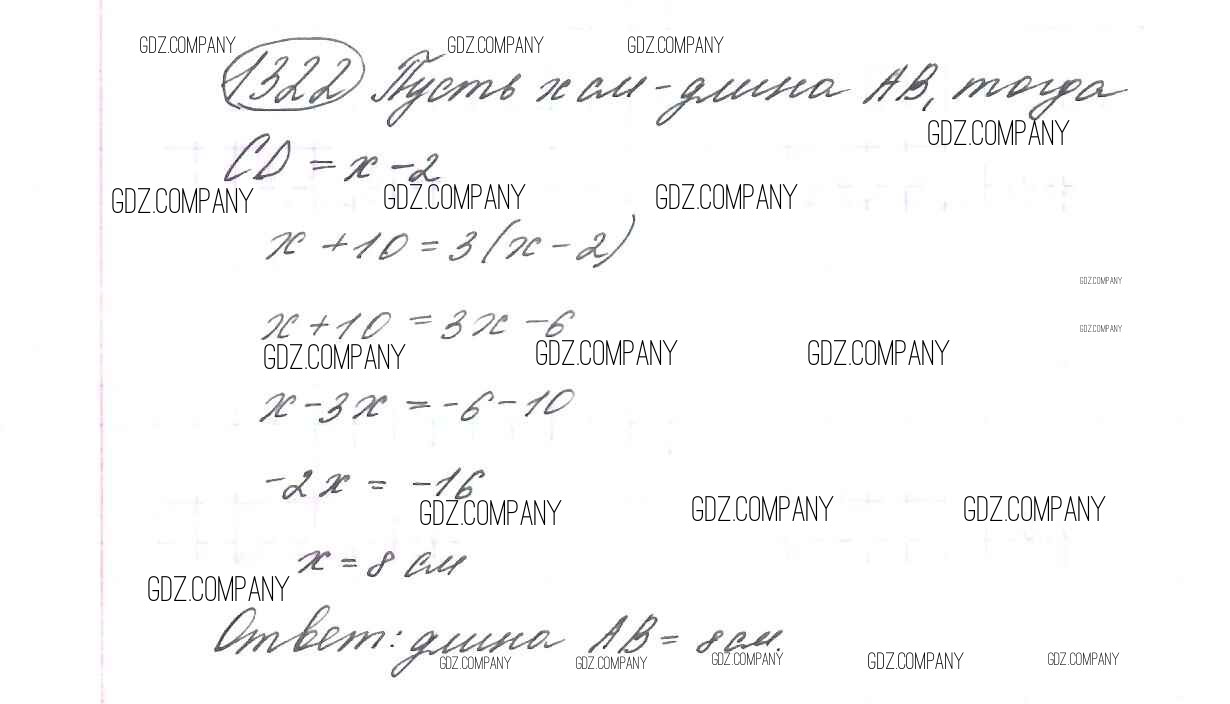 GDZ.COMPANY GDZ.COMPANY GDZ.COMPANY
1322 Пусть x см - длина AB, тогда
GDZ.COMPANY
CD = x - 2
GDZ.COMPANY GDZ.COMPANY GDZ.COMPANY
x + 10 = 3(x - 2)
GDZ.COMPANY
x + 10 = 3x - 6
GDZ.COMPANY
GDZ.COMPANY GDZ.COMPANY GDZ.COMPANY
x - 3x = -6 - 10
-2x = -16
GDZ.COMPANY GDZ.COMPANY GDZ.COMPANY
x = 8 см
GDZ.COMPANY
Ответ: длина AB = 8 см.
GDZ.COMPANY GDZ.COMPANY GDZ.COMPANY GDZ.COMPANY GDZ.COMPANY